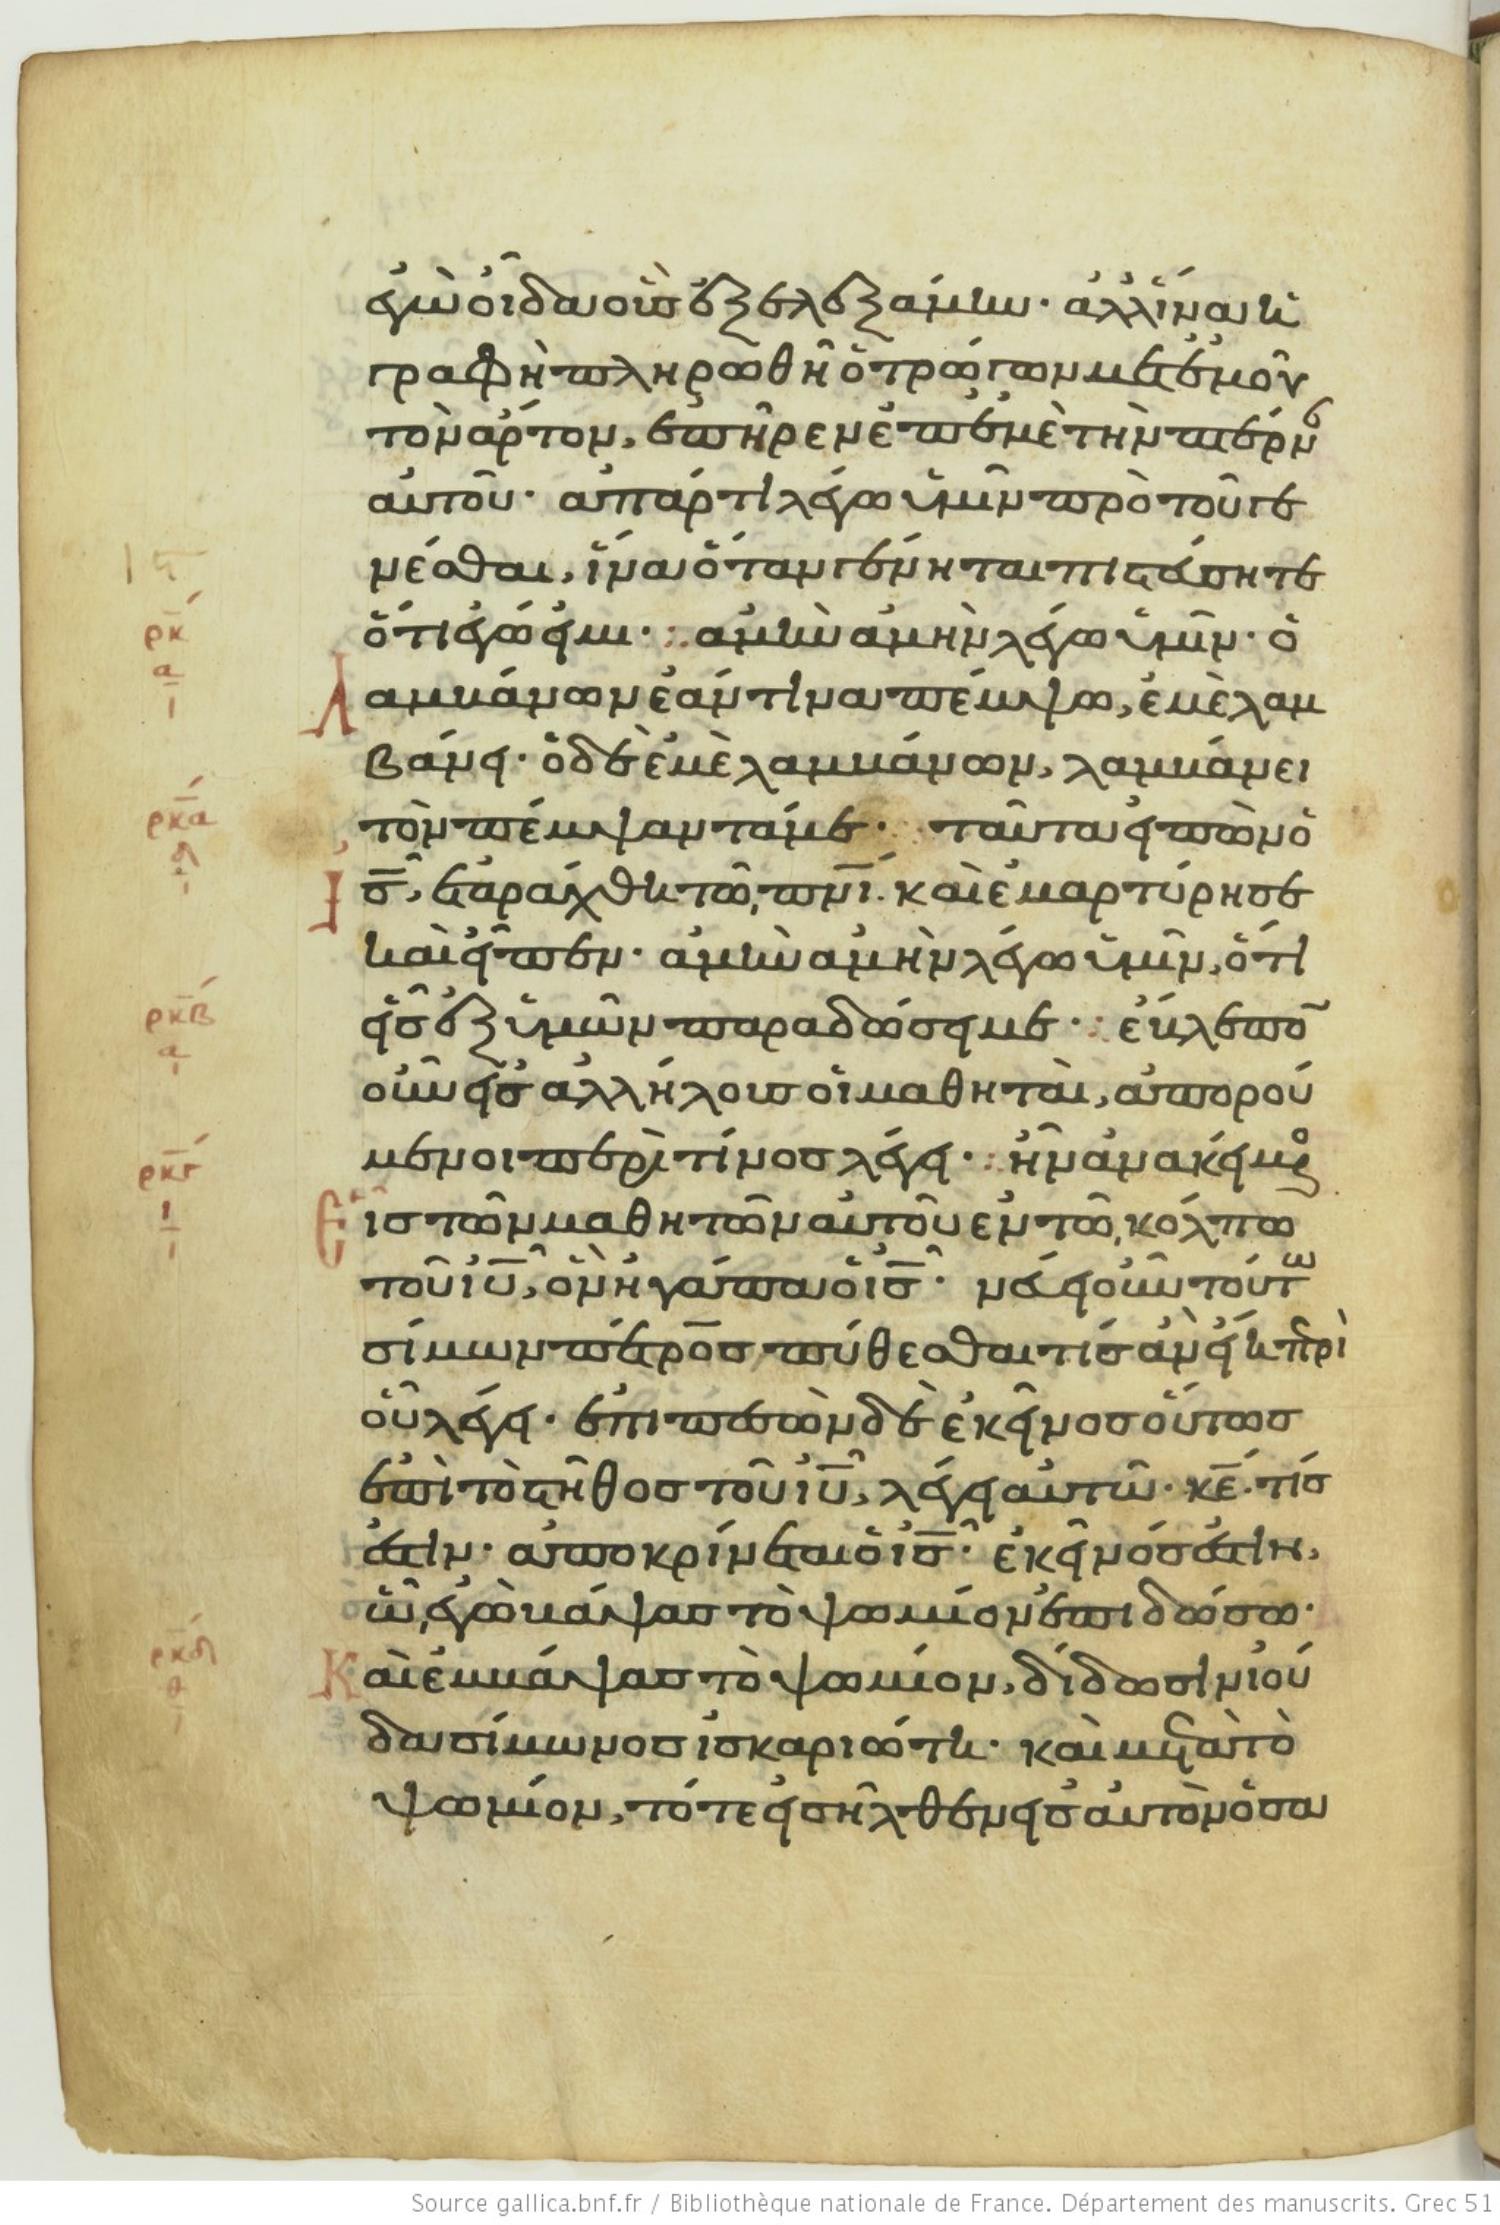 ἐγὼ οἶδα οὓς ἐξελεξάμην· ἀλλ' ἵνα ἡ
γραφὴ πληρωθῆ ὁ τρώγων μετ' ἐμοῦ
τὸν ἄρτον, ἐπῆρεν ἐπ' ἐμὲ τὴν πτέρν
αὐτοῦ· ἀπάρτι λέγω ὑμῖν πρὸ τοῦ γε
νέσθαι, ἵνα ὅταν γένηται πιστεύσητε
ὅτι ἐγώ εἰμι· ἀμὴν ἀμὴν λέγω ὑμῖν· ὁ
λαμβάνων ἐάν τινα πέμψω, ἐμὲ λαμ
βάνει· ὁ δὲ ἐμὲ λαμβάνων, λαμβάνει
τὸν πέμψαντά με· ταῦτα εἰπὼν ὁ
ἰς, ἐταράχθη τῶ πνι· καὶ ἐμαρτύρησε
καὶ εἶπεν· ἀμὴν ἀμὴν λέγω ὑμῖν, ὅτι
εἷς ἐξ ὑμῶν παραδώσει με· ἔβλεπο
οὖν εἰς ἀλλήλους οἱ μαθηταὶ, ἀπορού
μενοι περὶ τίνος λέγει· ἦν ἀνακείμενος
εἷς τῶν μαθητῶν αὐτοῦ ἐν τῶ κόλπω
τοῦ ιυ, ὃν ἠγάπα ὁ ις· νεύει οὖν τούτω
σίμων πέτρος πύθεσθαι τίς ἂν εἴη περὶ
οὗ λέγει· ἐπιπεσὼν δὲ ἐκεῖνος οὕτως
ἐπὶ τὸ στῆθος τοῦ ιυ, λέγει αὐτῶ· κε· τίς
ἐστιν· ἀποκρίνεται ὁ ις· ἐκεῖνός ἐστιν,
ὧ ἐγὼ βάψας τὸ ψωμίον ἐπιδώσω·
καὶ ἐμβάψας τὸ ψωμίον, δίδωσιν ἰού
δα σίμωνος ἰσκαριώτη· καὶ μετὰ τὸ
ψωμίον, τότε εἰσῆλθεν εἰς αὐτὸν ὁ σα
ρκ
α
ι
ρκα
δ
ρκβ
α
ρκγ
ι
ρκδ
θ
Source gallica.bnf.fr / Bibliothèque nationale de France. Département des manuscrits. Grec 51